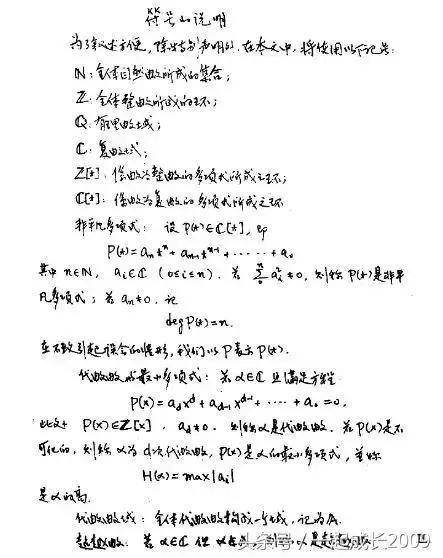 符号和说明
为了叙述方便，除特别声明外，在本文中，将使用以下记号：
N：全体自然数所成的集合；
Z：全体整数所成的环；
Q：有理数域；
C：复数域；
Z[x]：系数为整数的多项式所成之环；
C[x]：系数为复数的多项式所成之环
非平凡多项式：设 P(x)∈C[x]，即
P(x)=aₙxⁿ+aₙ₋₁xⁿ⁻¹+……+a₀
其中 n∈N，aᵢ∈C (0≤i≤n)．若 ≠0，则称 P(x)是非平
凡多项式；若 aₙ≠0，记
deg P(x)=n.
在不致引起误会的情形，我们以 P 表示 P(x).
代数数的最小多项式：若 α∈C 且满足方程
P(x)=a_d x^d+a_{d-1}x^{d-1}+……+a₀=0,
此处 P(x)∈Z[x]，a_d≠0．则称α是代数数．若 P(x)是不
可化的，则称 α为 d次代数数，P(x)是α的最小多项式，并称
H(α)=max|aᵢ|
是α的高.
代数数域：全体代数数构成一个域，记为A.
超越数：若 α∈C 但
头条号／ 成长2009